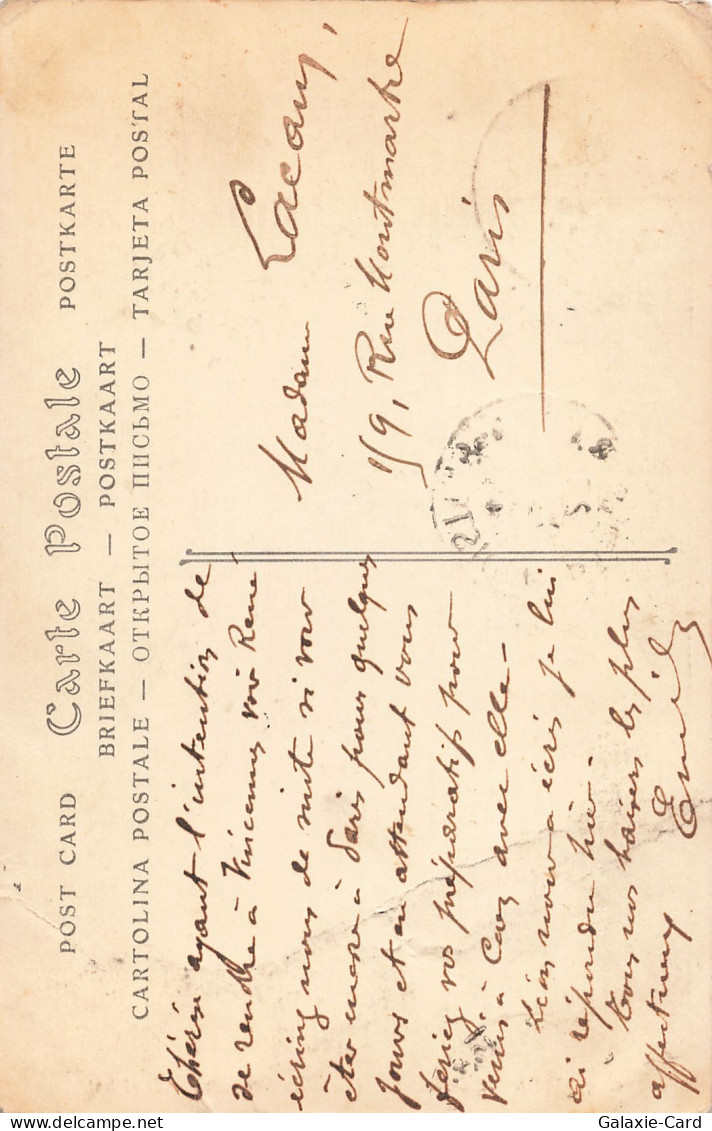 POST CARD Carte Postale POSTKARTE
BRIEFKAART — POSTKAART
CARTOLINA POSTALE — ОТКРЫТОЕ ПИСЬМО — TARJETA POSTAL
Thérèse ayant l'intention de
se rendre à Vincennes voir René,
écrivez nous de suite si vous
êtes encore à Paris pour quelques
jours et en attendant vous
feriez vos préparatifs pour
venir à Caez avec elle —
Léon nous a écrit je lui
ai répondu hier.
Tous nos baisers les plus
affectueux
Emile
Madame Lacour,
159, Rue Montmartre
Paris
delcampe.net
Galaxie-Card